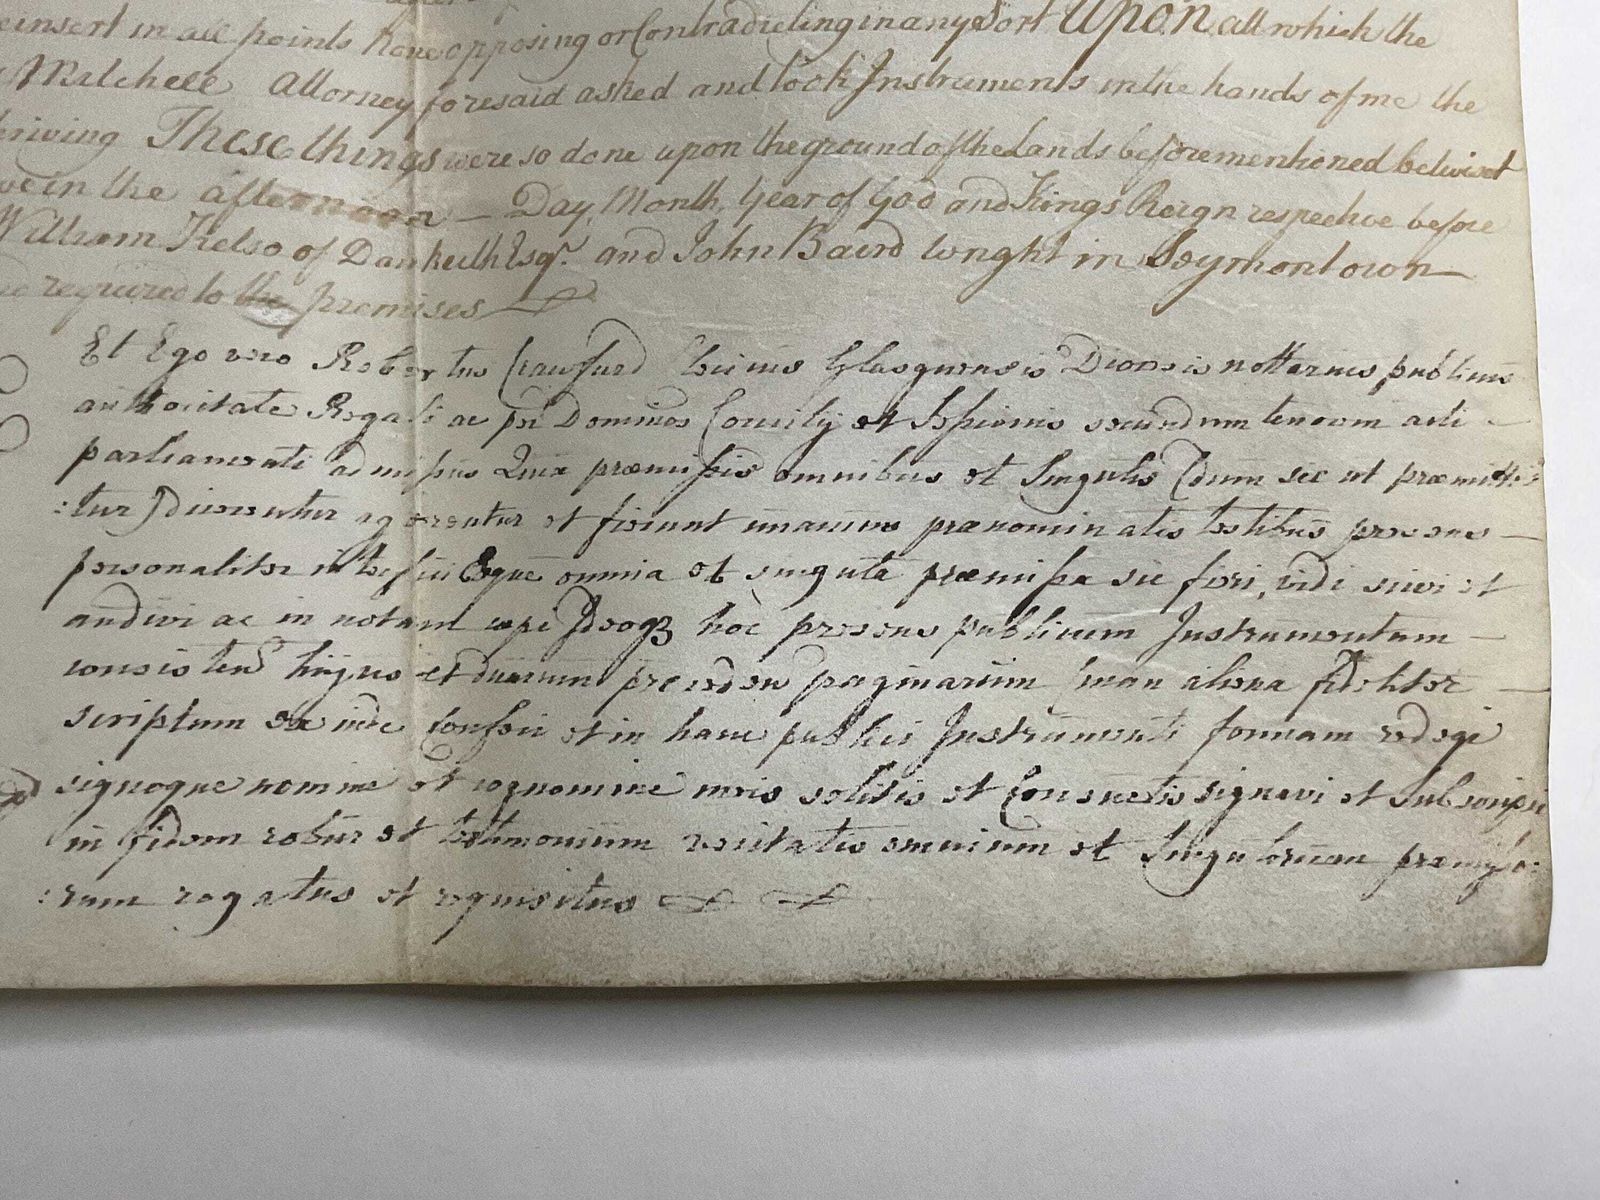 einsert in all points None opposing or Contradicting in any Sort Upon all which the
Mitchell Attorney foresaid asked and took Instruments in the hands of me the
These things were so done upon the ground of the Lands beforementioned betwixt
in the afternoon — Day, Month, Year of God and Kings Reign respective before
William Kelso of Dankeith Esqr. and John Baird wright in Symontown —
required to the premises
Et Ego vero Robertus Craufurd Clericus Glasguensis Diocesis nottarius publicus
authoritate Regali ac per Dominos Concilij et Sessionis secundum tenorem acti
parliamenti admissus Quia præmissis omnibus et Singulis (dum sic ut præmitti
:tur) dicerentur agerentur et fierent unacum prænominatis testibus presens —
personaliter interfui Eaque omnia et singula præmissa sic fieri, vidi scivi et
audivi ac in notam cepi Ideoq3 hoc presens publicum Instrumentum —
consisten hujus et duarum preceden paginarum man aliena fideliter —
scriptum ex inde confeci et in hanc publici Instrumenti formam redegi
signoque nomine et cognomine meis solitis et Consuetis signavi et Subscripsi
in fidem robur et testimonium veritatis omnium et Singulorum premisso:
:rum rogatus et requisitus